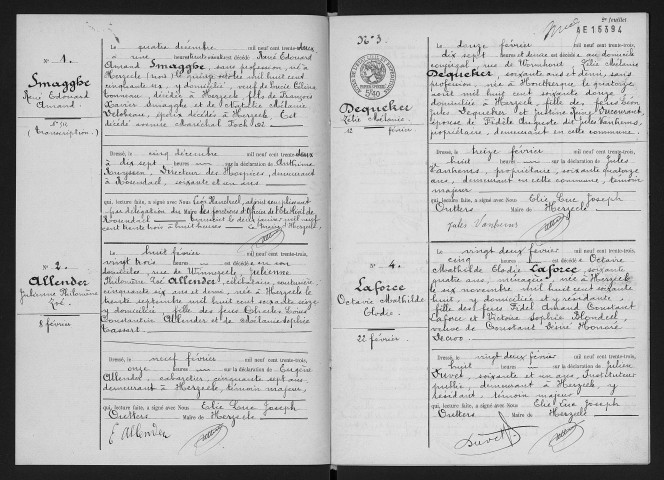 N° 1.
Smagghe
René Edouard
Amand.
(transcription)
Le quatre décembre mil neuf cent trente-deux
à onze heures est décédé René Edouard
Amand Smagghe, sans profession, né à
Herzeele (nord) le quinze octobre mil huit cent
cinquante six, y domicilié, veuf de Lucie Céline
décédée à Herzeele, fils de François
Xavier Smagghe et de Natalie Mélanie
Velobeau, époux décédés à Herzeele. Est
décédé avenue Maréchal Foch
Dressé, le cinq décembre mil neuf cent trente-deux
à dix sept heures sur la déclaration de Anthime
Directeur des Hospices, demeurant
à Rosendael, soixante et un ans
qui, lecture faite, a signé avec Nous
par délégation du Maire les fonctions d'Officier de l'Etat Civil de
Rosendael
cent trente trois à huit heures Le Maire d'Herzeele,
N° 2.
Allender
Julienne Philomène
Zoé.
8 février
Le huit février mil neuf cent trente-trois,
vingt trois heures est décédée en son
domicile, rue de Winnezeele, Julienne
Philomène Zoé Allender, célibataire, couturière,
cinquante six ans et demi, née à Herzeele le
trente septembre mil huit cent soixante seize
y domiciliée, fille des feus Charles Louis
Constantin Allender et de Natalie Sophie
Cassart.
Dressé, le neuf février mil neuf cent trente-trois,
onze heures sur la déclaration de Eugène
Allender, cabaretier, cinquante sept ans,
demeurant à Herzeele, témoin majeur,
qui, lecture faite, a signé avec Nous Elie Luc Joseph
Outters Maire de Herzeele
E Allender
2e feuillet
AE 15394
N° 3.
Dequcker
Zélie Mélanie.
12 février
Le douze février mil neuf cent trente-trois,
dix sept heures et demie est décédée au domicile
conjugal, rue de Wormhout Zélie Mélanie
Dequcker, soixante ans et demi, sans
profession, née à Houtkerque le quatorze
août mil huit cent soixante douze
domiciliée à Herzeele, fille des feus Léon
Jules Dequcker et Justine Reine Ducourant,
épouse de Fidèle Auguste et Jules Vanhems,
propriétaire, demeurant en cette commune.
Dressé, le treize février mil neuf cent trente-trois,
huit heures sur la déclaration de Jules
Vanhems, propriétaire, soixante quatorze
ans, demeurant en cette commune, témoin
majeur
qui, lecture faite, a signé avec Nous Elie Luc Joseph
Outters Maire de Herzeele.
Jules Vanhems
N° 4.
Laforce
Octavie Mathilde
Elodie.
22 février.
Le vingt deux février mil neuf cent trente-trois,
cinq heures est décédée Octavie
Mathilde Elodie Laforce, soixante
quatre ans, ménagère, née à Herzeele
le six novembre mil huit cent soixante
huit, y domiciliée et y résidante,
fille des feus Fidel Amand Constant
Laforce et Victoire Sophie Blondeel,
veuve de Constant Désiré Honoré
Decroo.
Dressé, le vingt deux février mil neuf cent trente-trois,
huit heures sur la déclaration de Julien
Duvet, soixante et un ans, Instituteur
public, demeurant à Herzeele, y
résidant témoin majeur,
qui, lecture faite, a signé avec Nous Elie Luc Joseph
Outters Maire de Herzeele
Duvet